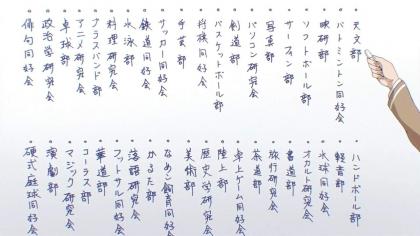 天文部
バトミントン同好会
ソフトボール部
映研部
サーフィン部
写真部
パソコン研究会
剣道部
バスケットボール部
将棋同好会
手芸部
サッカー同好会
鉄道同好会
水泳部
料理研究会
ブラスバンド部
アニメ研究会
卓球部
政治学研究会
俳句同好会
ハンドボール部
軽音部
水球同好会
オカルト研究会
書道部
旅行研究会
茶道部
卓上ゲーム同好会
陸上部
歴史学研究会
美術部
なめこ飼育同好会
かるた部
落語研究会
フットサル同好会
華道部
コーラス部
マジック研究会
演劇部
硬式庭球同好会